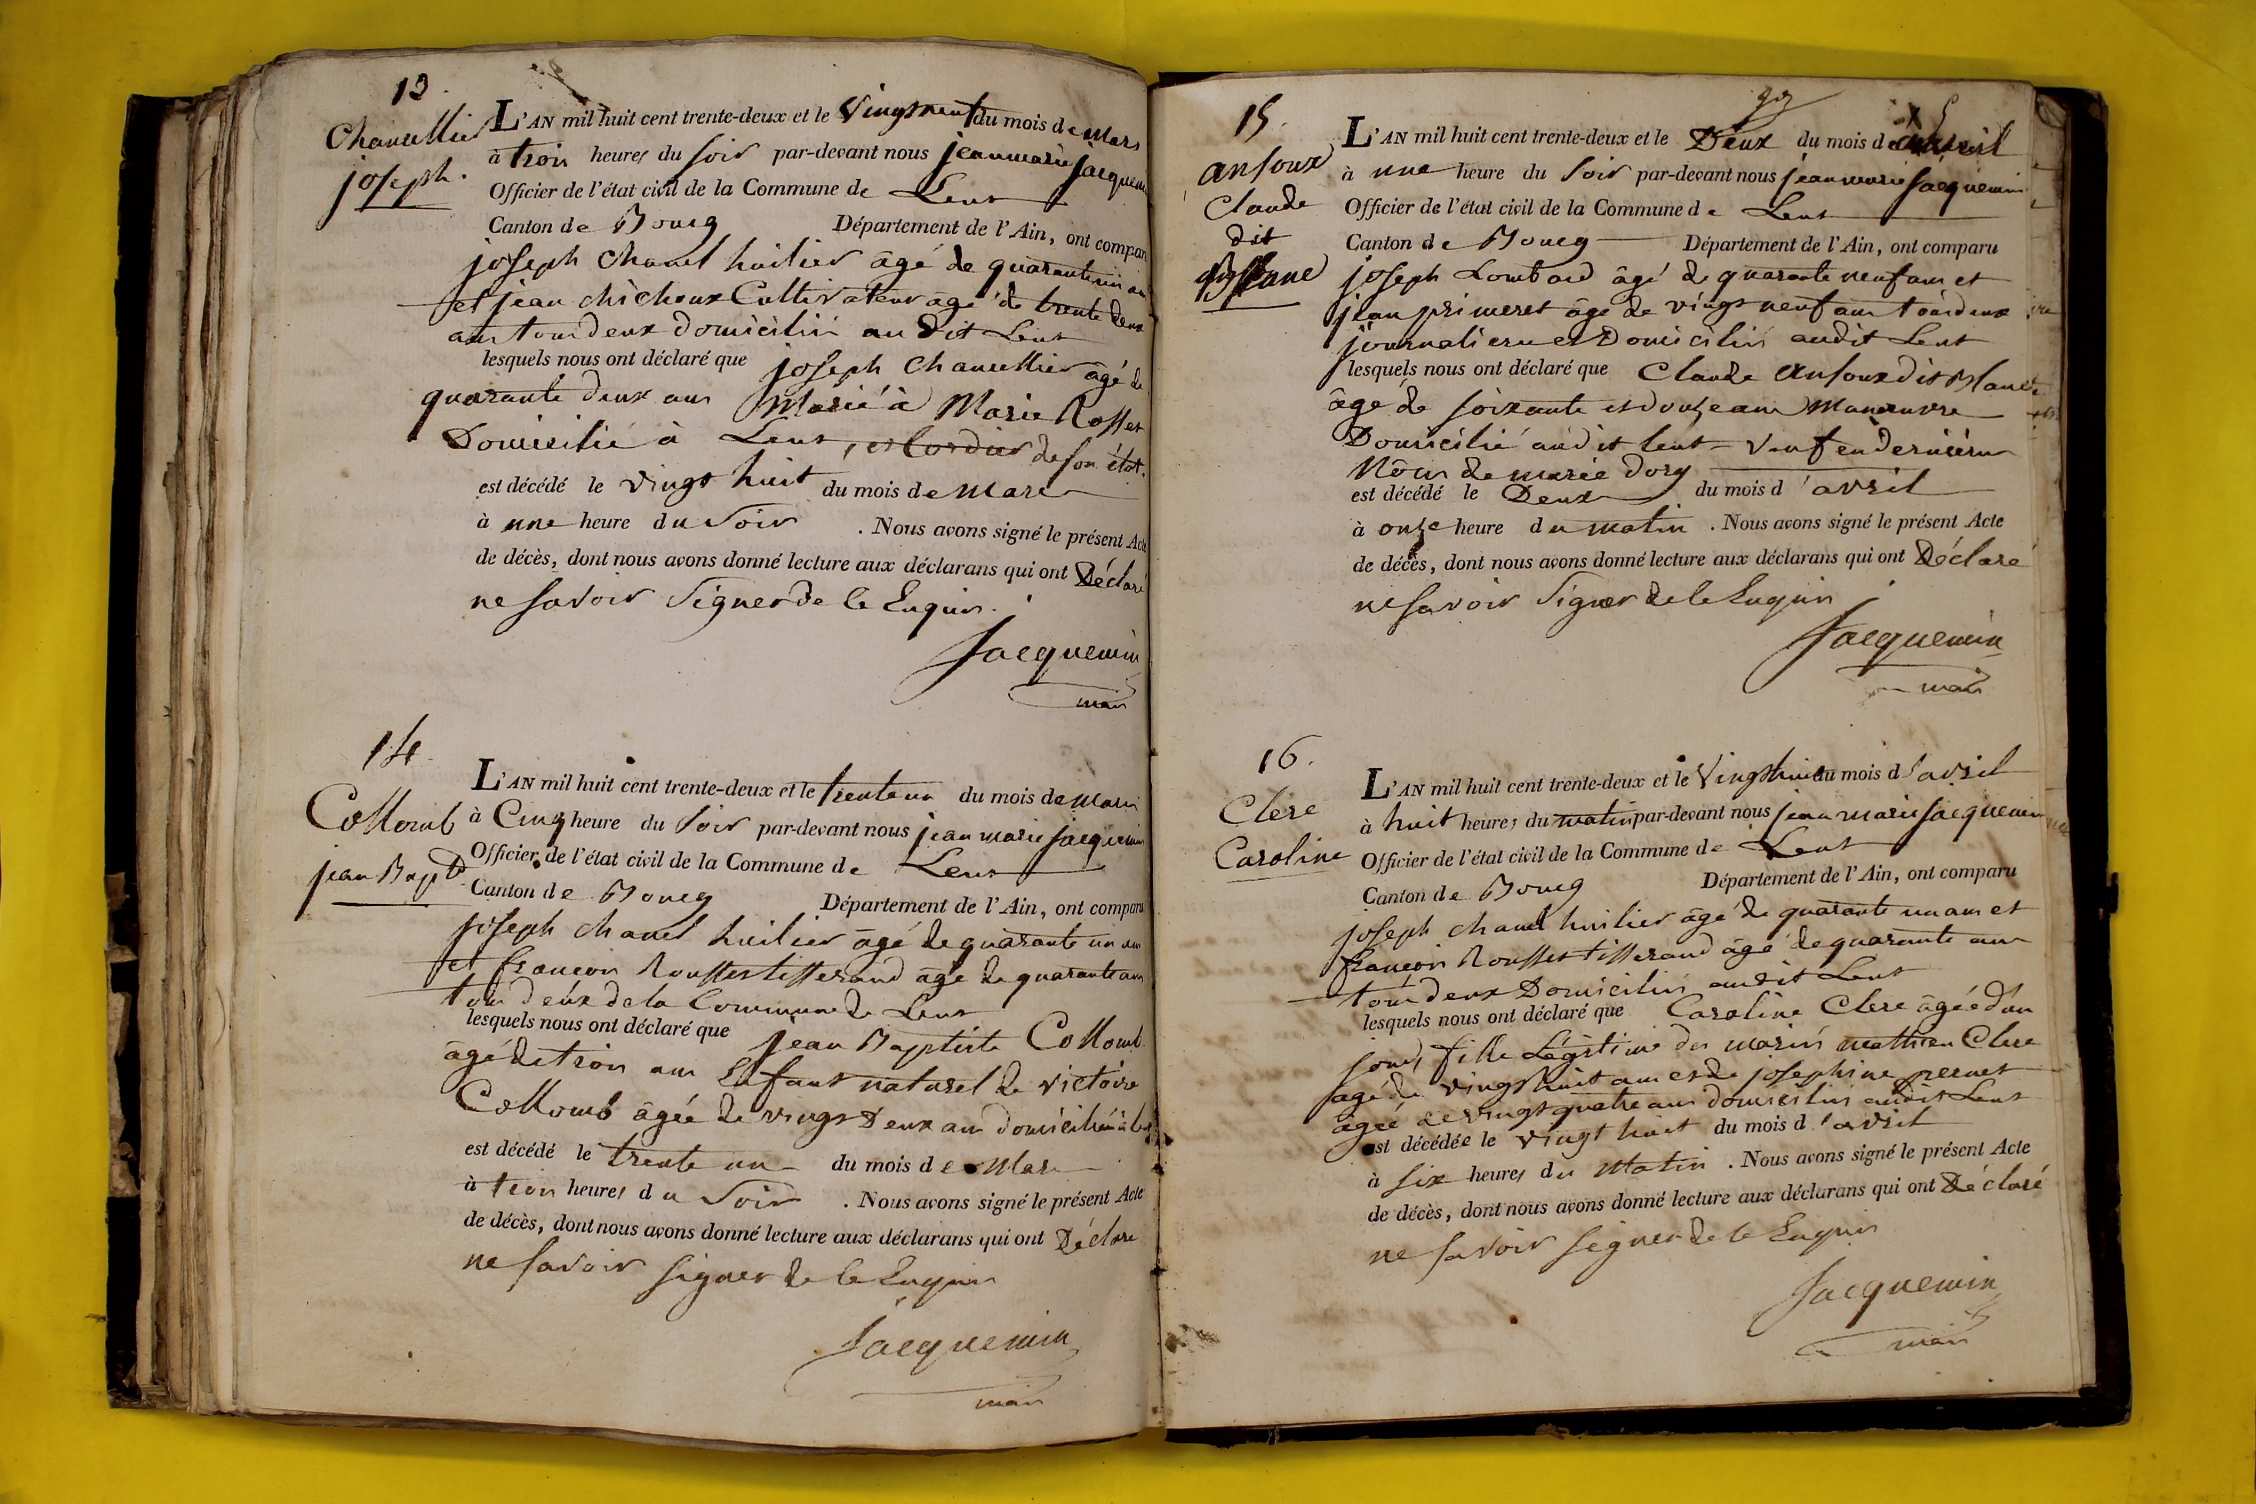 13.
Chanellier
joseph.
L'AN mil huit cent trente-deux et le vingt neuf du mois de mars
à trois heures du soir par-devant nous jean marie jacquemin
Officier de l'état civil de la Commune de Lent
Canton de Bourg Département de l'Ain, ont comparu
joseph chanel huilier âgé de quarante un an
et jean chichoux Cultivateur âgé de trente deux
ans tous deux domiciliés au dit Lent
lesquels nous ont déclaré que joseph Chanellier âgé de
quarante deux ans Marié à Marie Rosset
Domicilié à Lent, et Cordier de son état.
est décédé le vingt huit du mois de Mars
à une heure du soir. Nous avons signé le présent Acte
de décès, dont nous avons donné lecture aux déclarans qui ont Déclaré
ne savoir signer de ce Enquis.
Jacquemin
maire
14.
Collomb
jean Bapte
L'AN mil huit cent trente-deux et le trente un du mois de mars
à Cinq heure du soir par-devant nous jean marie jacquemin
Officier de l'état civil de la Commune de Lent
Canton de Bourg Département de l'Ain, ont comparu
joseph chanel huilier âgé de quarante un ans
et françois Rousset tisserand âgé de quarante ans
tous deux de la Commune de Lent
lesquels nous ont déclaré que jean Baptiste Collomb
âgé de trois ans Enfant naturel de victoire
Collomb âgée de vingt Deux ans domiciliée à Lent
est décédé le trente un du mois de Mars
à trois heures du soir. Nous avons signé le présent Acte
de décès, dont nous avons donné lecture aux déclarans qui ont Déclaré
ne savoir signer de ce Enquis
Jacquemin
maire
15.
anfoux
Claude
dit
L'AN mil huit cent trente-deux et le Deux du mois d'avril
à une heure du soir par-devant nous jean marie jacquemin
Officier de l'état civil de la Commune de Lent
Canton de Bourg Département de l'Ain, ont comparu
joseph Lombard âgé de quarante neuf ans et
jean primeret âgé de vingt neuf ans tous deux
journaliers et Domiciliés audit Lent
lesquels nous ont déclaré que Claude anfoux dit
âgé de soixante et douze ans Manœuvre
Domicilié audit lent veuf en dernières
Nôces de marie Dory
est décédé le Deux du mois d'avril
à onze heure du matin. Nous avons signé le présent Acte
de décès, dont nous avons donné lecture aux déclarans qui ont Déclaré
ne savoir signer de ce Enquis
Jacquemin
maire
16.
Clerc
Caroline
L'AN mil huit cent trente-deux et le vingt huit du mois d'avril
à huit heures du matin par-devant nous jean marie jacquemin
Officier de l'état civil de la Commune de Lent
Canton de Bourg Département de l'Ain, ont comparu
joseph chanel huilier âgé de quarante un ans et
françois Rousset tisserand âgé de quarante ans
tous deux Domiciliés audit Lent
lesquels nous ont déclaré que Caroline Clerc âgée d'un
jour, fille Légitime des mariés mathieu Clerc
âgé de vingt huit ans et de josephine pernet
âgée de vingt quatre ans domiciliés audit Lent
est décédée le vingt huit du mois d'avril
à six heures du Matin. Nous avons signé le présent Acte
de décès, dont nous avons donné lecture aux déclarans qui ont Déclaré
ne savoir signer de ce Enquis
Jacquemin
maire